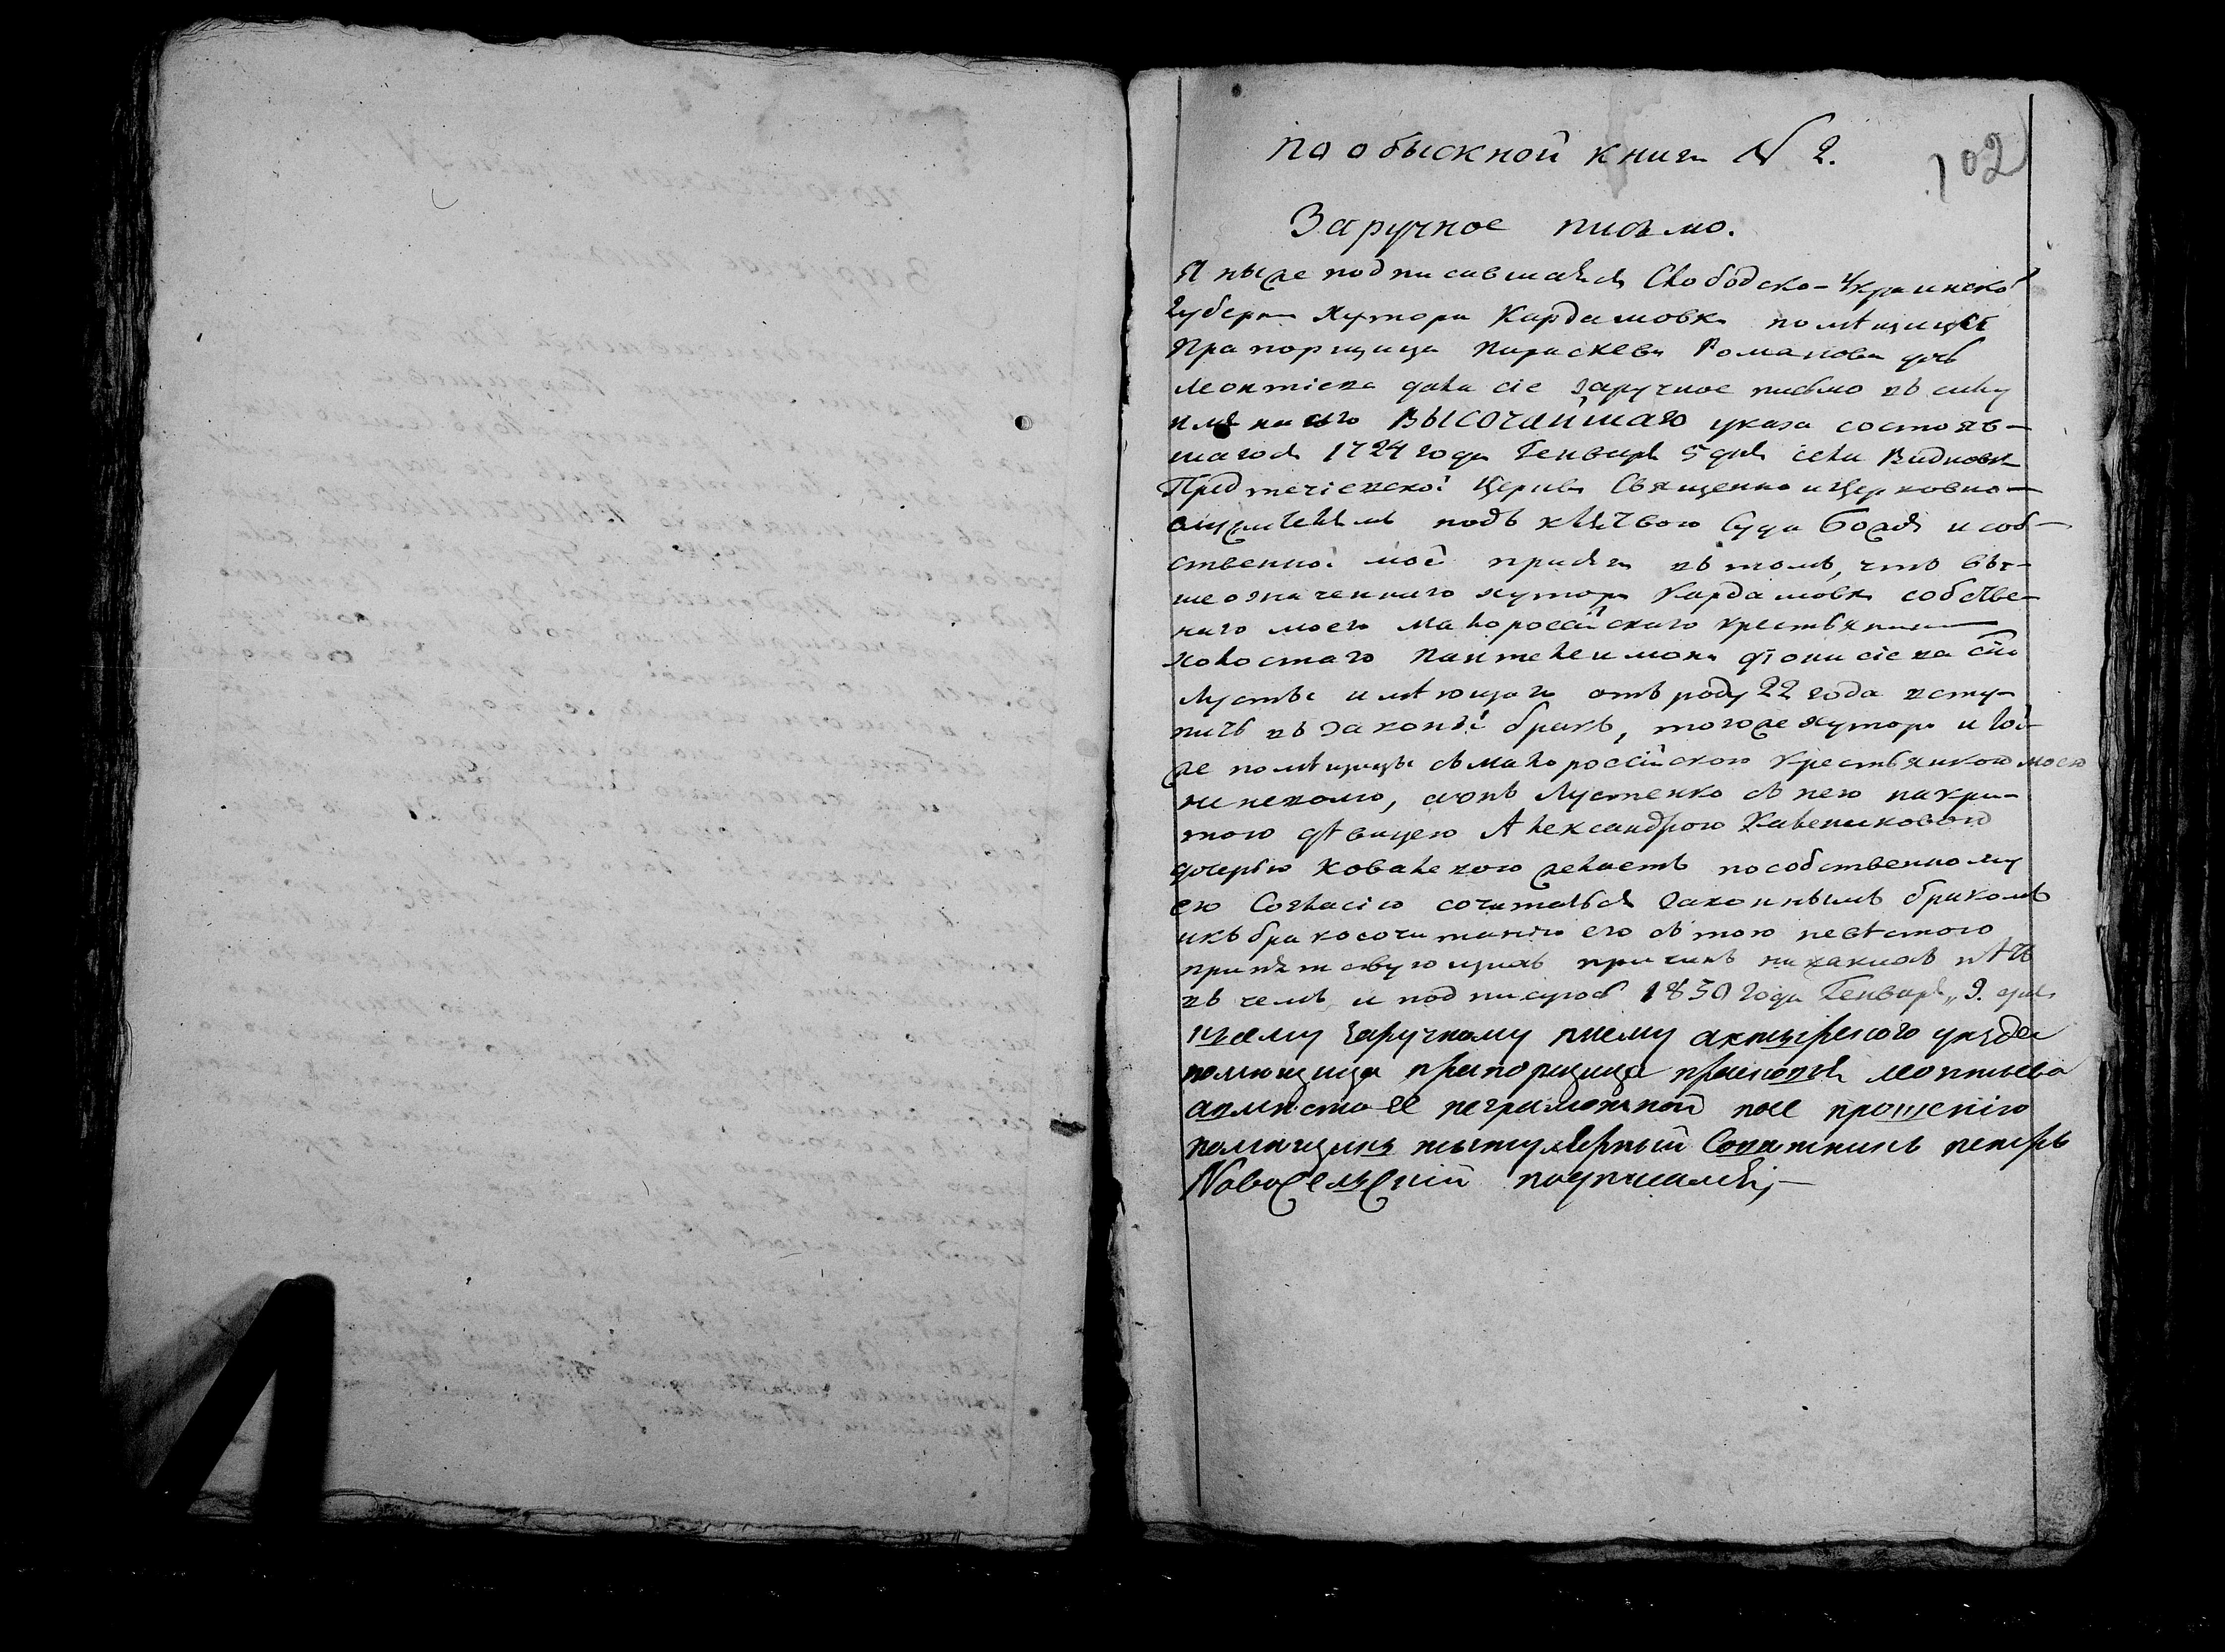 по обыскной книги № 2.
102
Заручное письмо.
Я ниже подписавшаяся Слободско-Украинской
Губерни хутора Кардамовки помѣщица
Прапорщица Параскева Романова дочь
Леонтіева дала сіе заручное письмо въ силу
имяннаго ВЫСОЧАЙШАГО указа состояв-
шагося 1724 года Генваря 5 дня села
Предтечіевской Церкви Священно и Церковно-
служителямъ подъ клятвою Суда Божія и соб-
ственной моей присяги въ томъ, что вы-
шеозначеннаго хутора Кардамовки собстве-
наго моего малороссійскаго крестьянина
холостаго Пантелеимона Діонисіева сына
имѣющаго отъ роду 22 года всту-
пить въ законый бракъ, того же хутора и той-
же помѣщицы съ малороссійскою крестьянкою моею
Лустенко съ нею
дѣвицею Александрою
дочерью желаетъ по собственному
ею Согласію сочитаться законнымъ бракомъ
и къ бракосочитанію его съ тою невѣстою
припятствующихъ причинъ никакихъ нѣтъ
въ чемъ и подписуюсь 1830 года Генваря „9. дня
къ сему заручному писму ахтырского уезда
помещица прапорщица леонтьева
а вместо ее неграмотной по ее прошению
помещикъ титулярный Советникъ петръ
Новоселский подписался;—